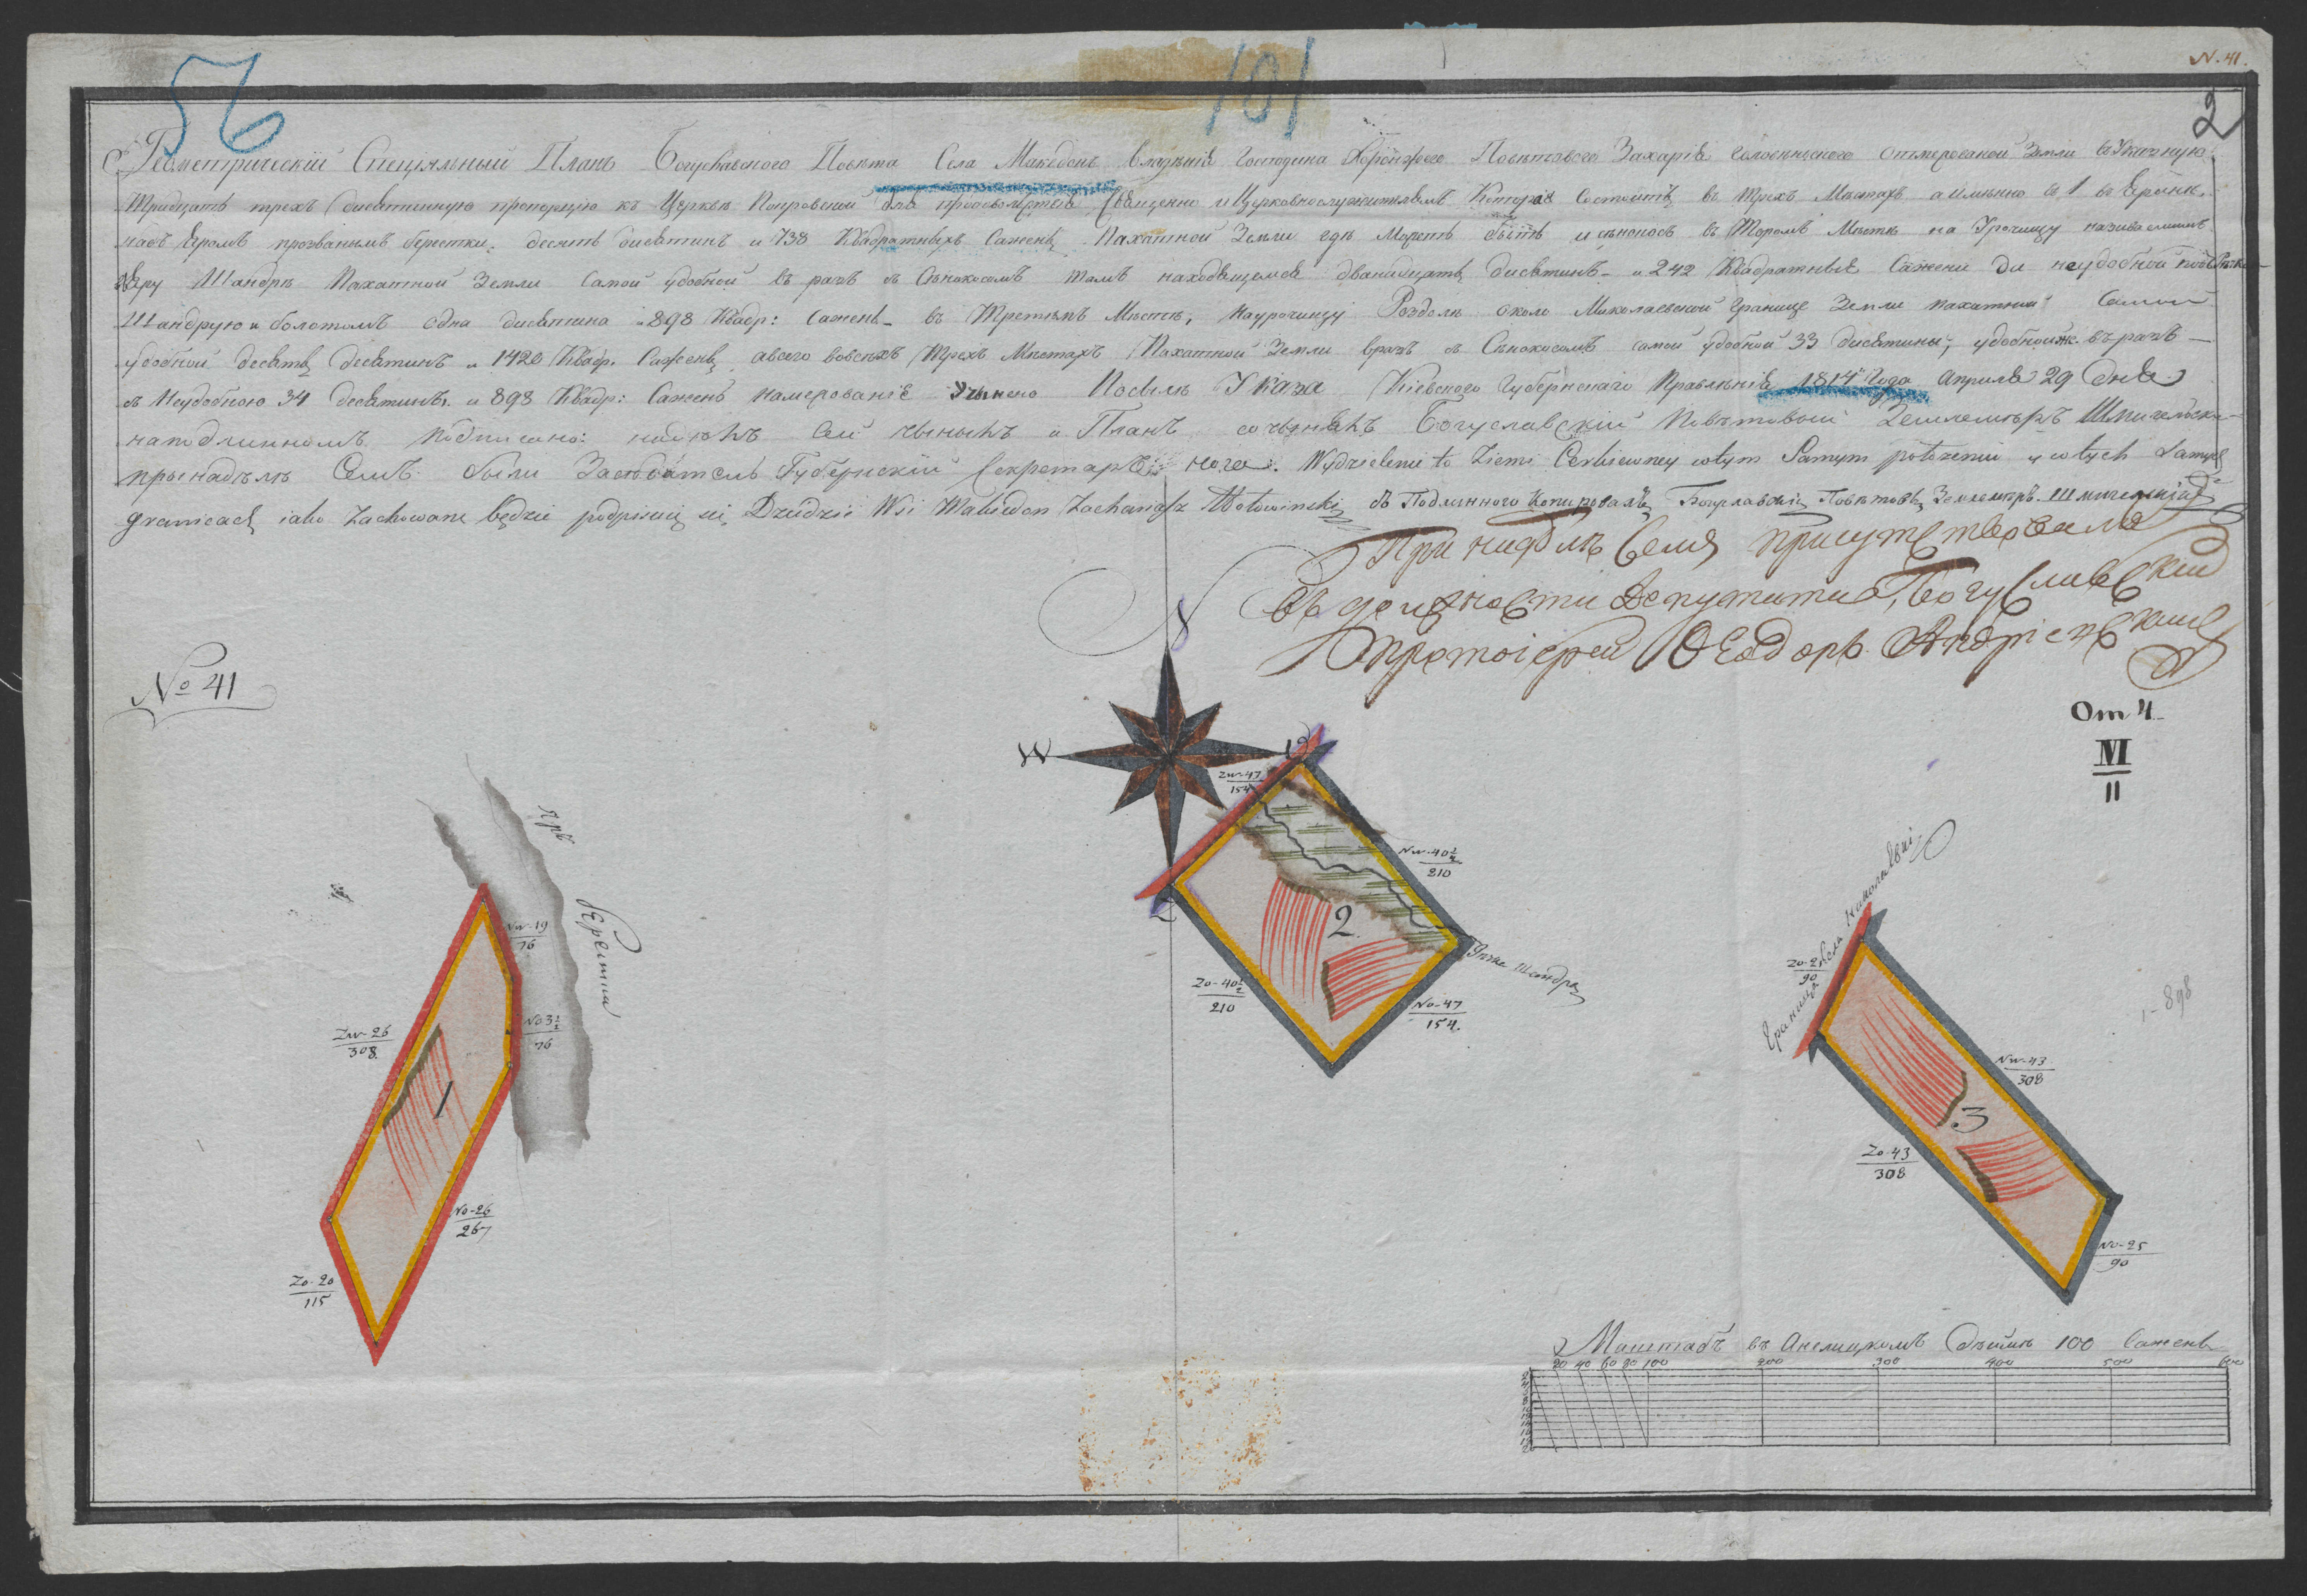 N. 41.
56
101
2
Геометрический Спецiяльный Планъ Богуславского Повѣта Села Македонъ Владѣнія Господина Хорунжего Повѣтового Захарія отмерованой Земли
Тридцать трехъ десятинную пропорцію къ Церквѣ Покровской для продовольствія Священно и Церковнослужителямъ Которая Состоитъ въ трехъ Мѣстахъ а именно въ 1
надъ Яромъ прозванымъ берестки, десять десятинъ и 738 Квадратныхъ Сажень Пахатной Земли гдѣ Можетъ быть и сѣнокосъ въ Торомъ Мѣстѣ на Урочищу називаемимъ
Яру Шандрѣ Пахатной Земли Самой удобной въ разъ съ Сѣнокосомъ тамъ находящемся дванадцать десятинъ и 242 Квадратные Сажени Да неудобной подъ
Шандрую и болотомъ одна десятина и 898 Квадр: Сажень въ Третьемъ Мѣстѣ, На урочищу Роздолѣ около Миколаевской Границе Земли пахатной Самой
удобной десять десятинъ и 1420 Квадр. Сажень, а всего вовсѣхъ Трехъ Мѣстахъ Пахатной Земли вразъ съ Сѣнокосомъ самой удобной 33 десятины, удобной же въ разъ
съ Неудобною 34 десятинъ и 898 Квадр: Сажень Намерованіе Учинено Посилѣ Указа Кіевского Губернскаго Правленія 1814 Года Апреля 29 Дня
на подлинномъ подписано: надѣлъ Сей чинилъ и Планъ сочинялъ Богуславскій Повѣтовый Землемѣръ
при надѣлѣ Семъ были Засѣдатель Губернскій Секретарь Wydzielenie to Ziemi Cerkiewney w tym Samym położeniu y w tych Samych
granicach iako Zachowane będzie podpisuię się Dziedzic Wsi Makiedon Zacharyasz Hołowinski Съ Подлинного Копировалъ Богуславскій Повѣтовъ Землемеръ
При надѣлѣ семъ присутствовалъ
въ должности Депутата, Богуславский
протоіерей Ѳеодоръ Андріевский
N
W
№ 41
От 4
VI
II
Яръ
Берестки
Nw-19
76
No 3½
76
Zw-26
308.
1
No-26
267
Zo-20
115
Zw-47
154
Nw-40½
210
2
Zo-40½
210
No-47
154.
Рѣчка Шандра
Граница Села Николаевки
Zo-25
90
Nw-43
308
3
Zo-43
308
No-25
90
1-898
Маштабъ въ Англицкомъ Дюймѣ 100 Сажень
20 40 60 80 100 200 300 400 500 600